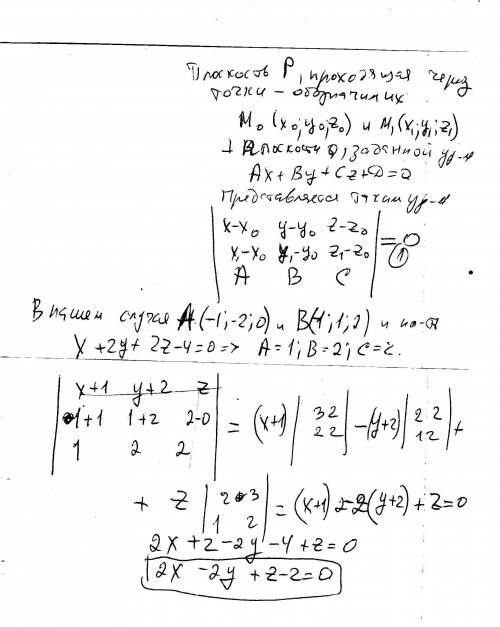 Плоскость P, проходящая через
точки – обозначим их
M₀(x₀;y₀;z₀) и M₁(x₁;y₁;z₁)
⊥ плоскости Q, заданной ур-м
Ax + By + Cz + D = 0
Представляется таким ур-м
| x-x₀ y-y₀ z-z₀ |
| x₁-x₀ y₁-y₀ z₁-z₀ | = 0 (1)
| A B C |
В нашем случае A(-1;-2;0) и B(1;1;2) и пл-ть
x + 2y + 2z - 4 = 0 => A = 1; B = 2; C = 2.
| x+1 y+2 z |
| 1+1 1+2 2-0 | = (x+1) | 3 2 | - (y+2) | 2 2 | +
| 1 2 2 | | 2 2 | | 1 2 |
+ z | 2 3 | = (x+1) 2 - 2(y+2) + z = 0
| 1 2 |
2x + 2 - 2y - 4 + z = 0
2x - 2y + z - 2 = 0